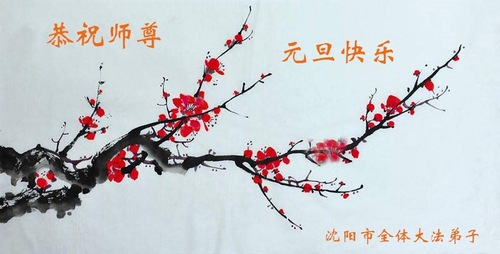 恭祝师尊
元旦快乐
沈阳市全体大法弟子